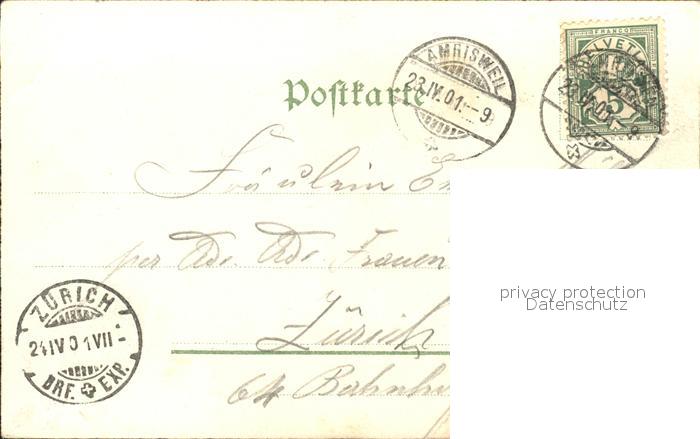 AMRISWEIL
23.IV.01.-9
FRANCO
HELVETIA
5
Postkarte
Fräulein
per Adr. Adr. Frauen
Zürich
64 Bahnho
ZÜRICH
24 IV 01 VII-
BRF. EXP.
privacy protection
Datenschutz